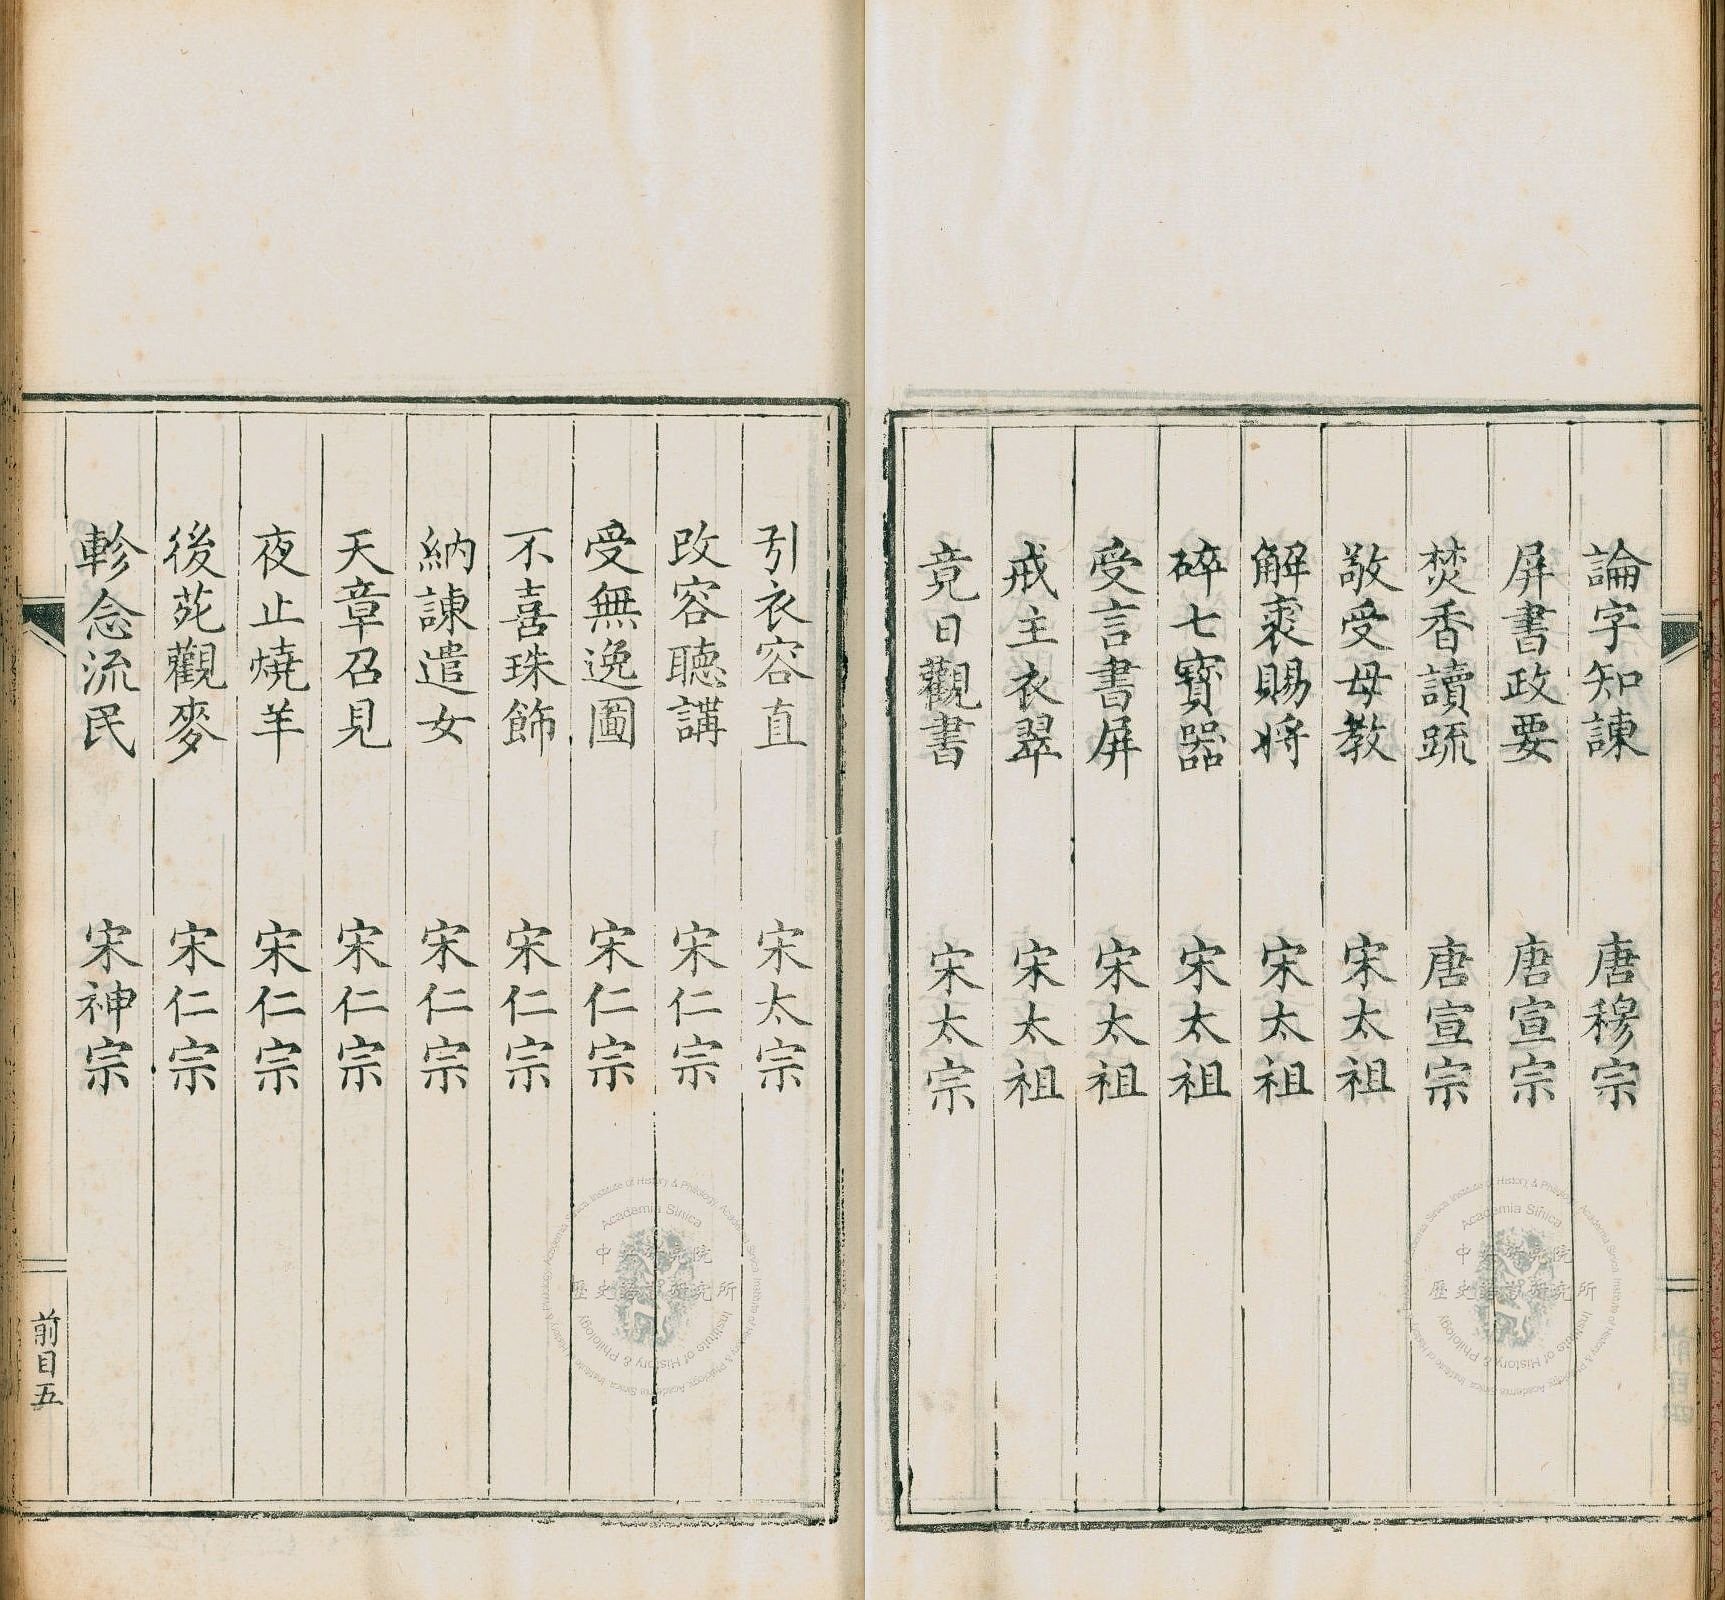 論字知諫　唐穆宗
屏書政要　唐宣宗
焚香讀疏　唐宣宗
敬受母教　宋太祖
解裘賜將　宋太祖
碎七寶器　宋太祖
受言書屏　宋太祖
戒主衣翠　宋太祖
竟日觀書　宋太宗
引衣容直　宋太宗
改容聽講　宋仁宗
受無逸圖　宋仁宗
不喜珠飾　宋仁宗
納諫遣女　宋仁宗
天章召見　宋仁宗
夜止燒羊　宋仁宗
後苑觀麥　宋仁宗
軫念流民　宋神宗
前目五
Academia Sinica
中央研究院
歷史語言研究所
Institute of History & Philology
Academia Sinica
中央研究院
歷史語言研究所
Institute of History & Philology